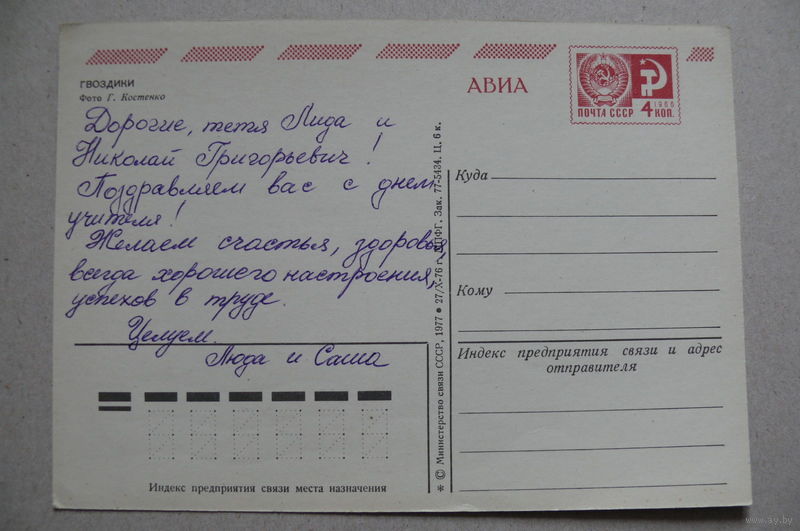 ГВОЗДИКИ
Фото Г. Костенко
Дорогие, тетя Лида и
Николай Григорьевич!
Поздравляем вас с днем
учителя!
Желаем счастья, здоровья,
всегда хорошего настроения,
успехов в труде.
Целуем.
Люда и Саша
Индекс предприятия связи места назначения
* © Министерство связи СССР, 1977 ● 27/X-76 г. МПФГ. Зак. 77-5434. Ц. 6 к.
АВИА
ПОЧТА СССР
1966
4 КОП.
Куда
Кому
Индекс предприятия связи и адрес
отправителя
www.ay.by